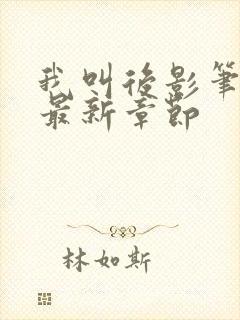 我叫後影筆
最新章節
林如斯